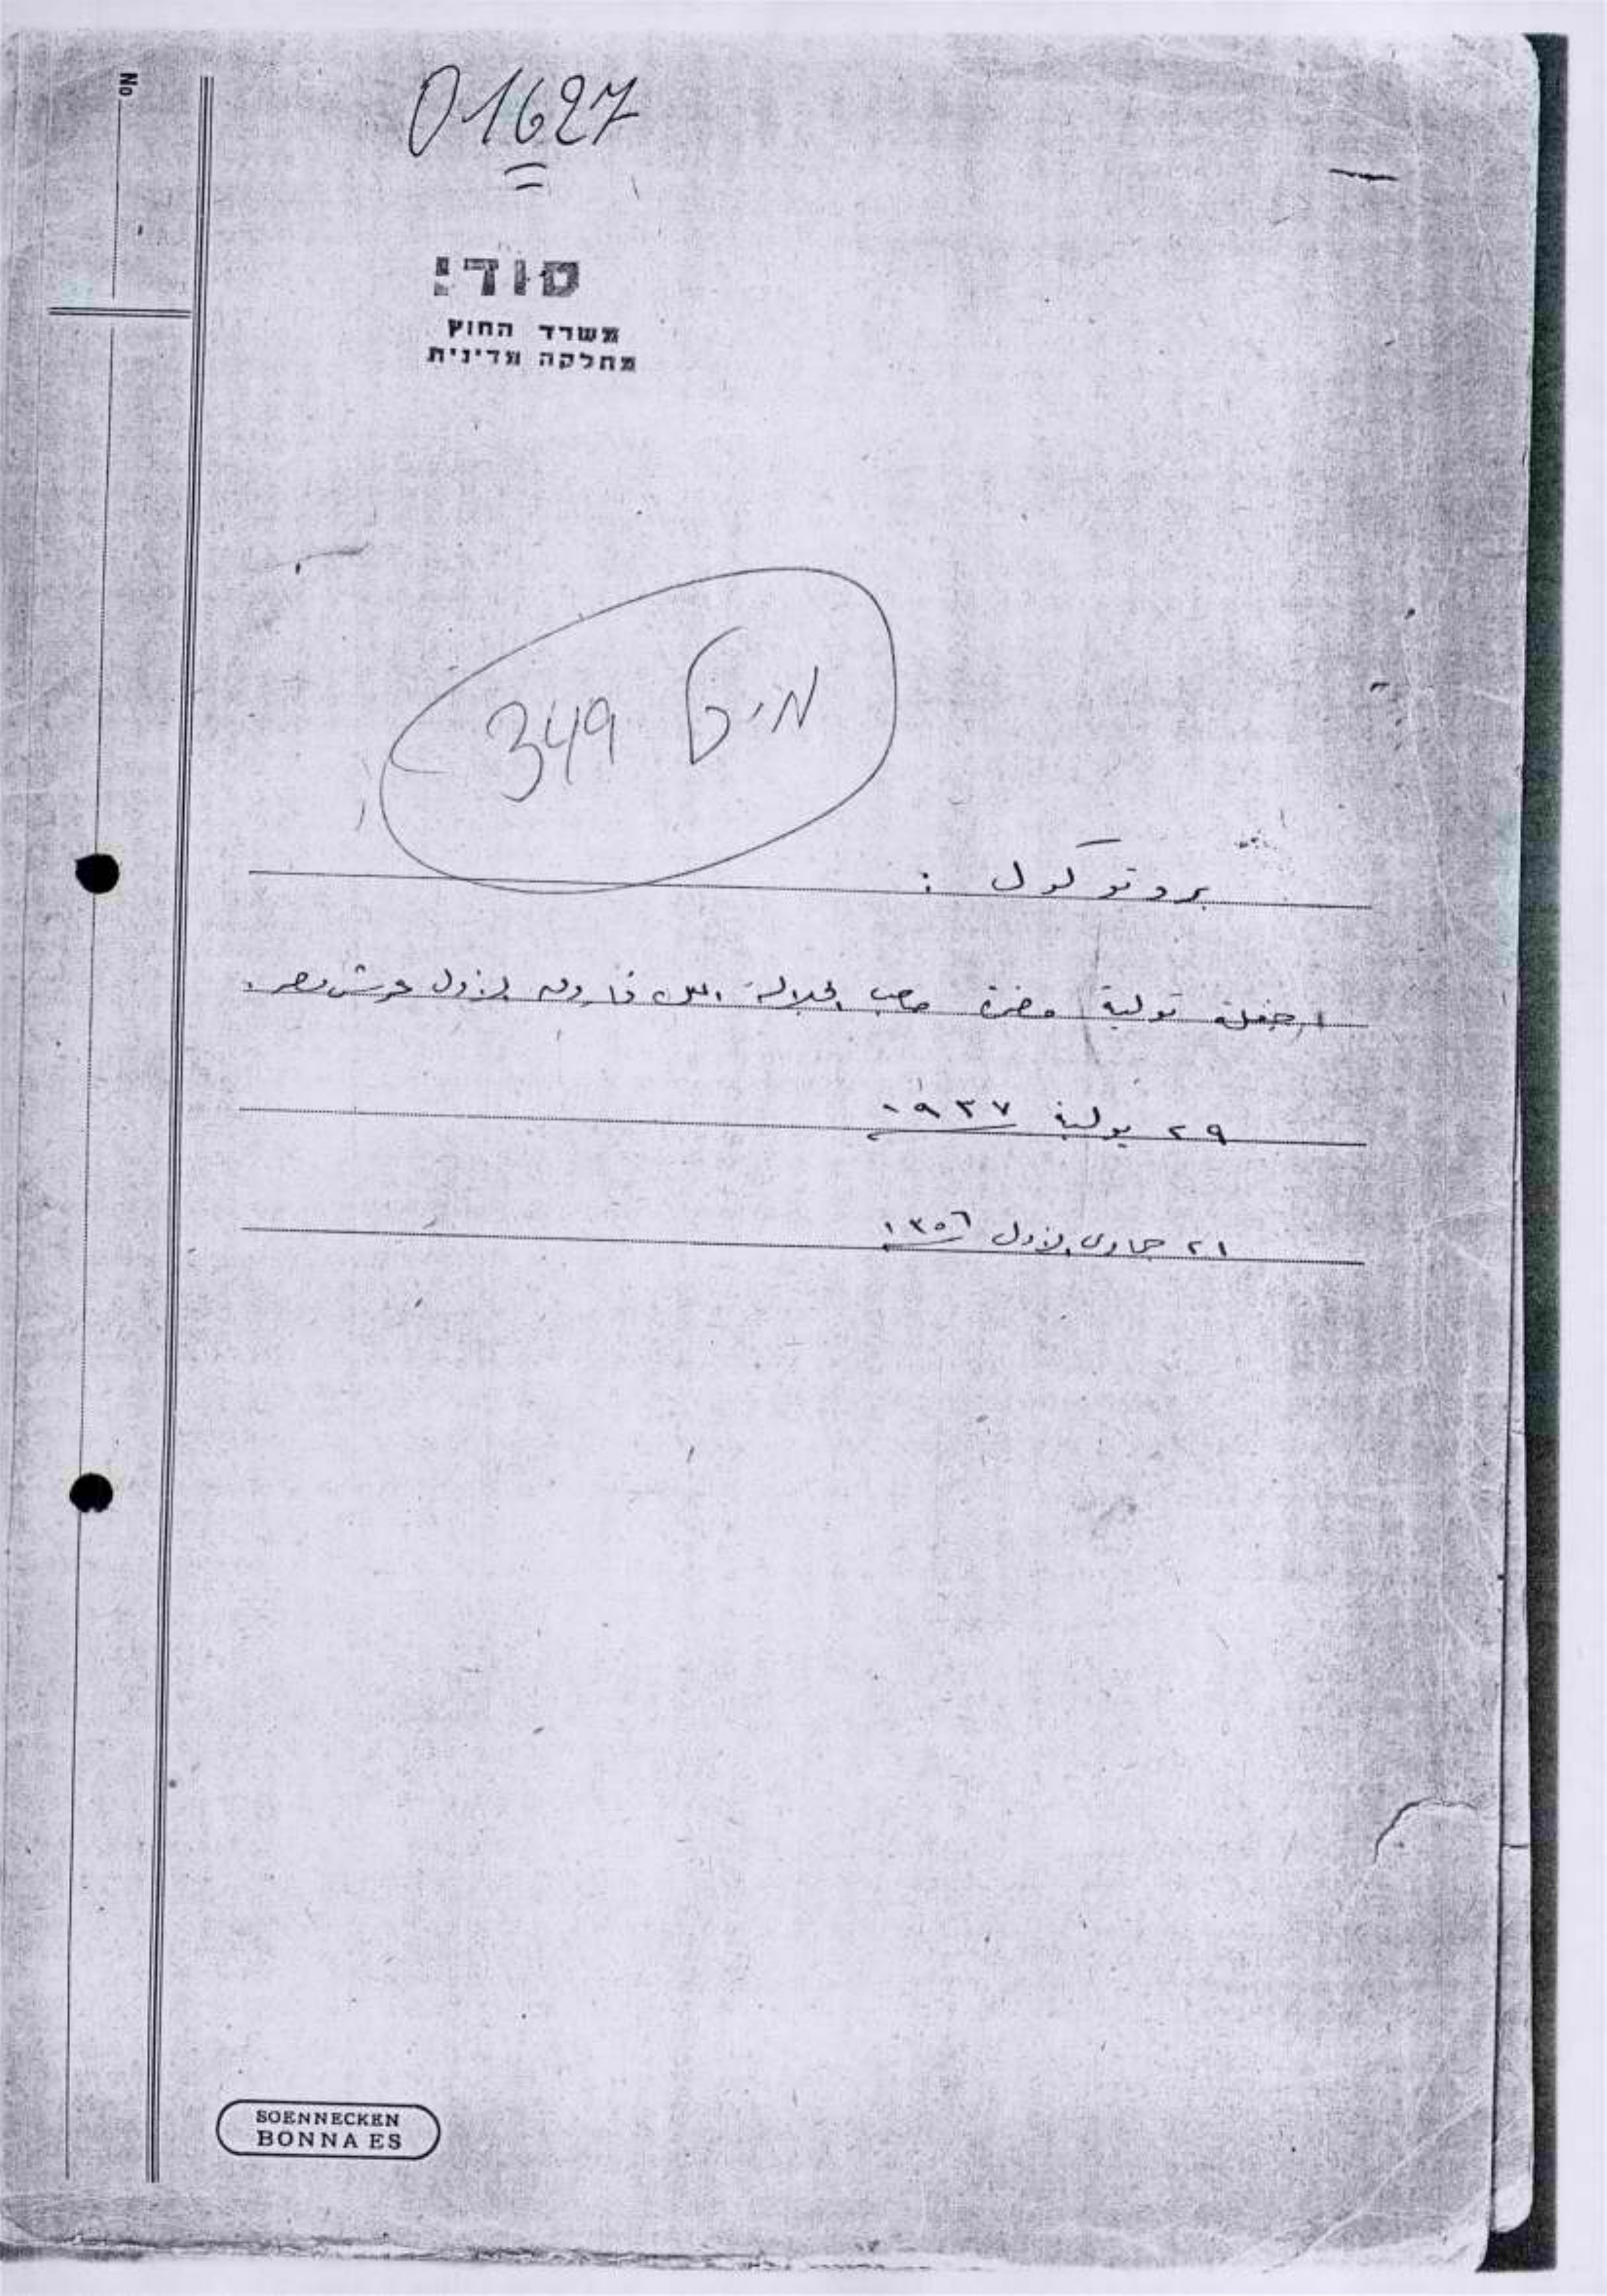 No
01627
סודי
משרד החוץ
מחלקה מדינית
349
بروتوكول :
تولية حضرة صاحب الجلالة الملك فاروق الأول عرش مصر.
٢٩ يولية ١٩٣٧
٢١ جمادى الأول ١٣٥٦
SOENNECKEN
BONNA ES